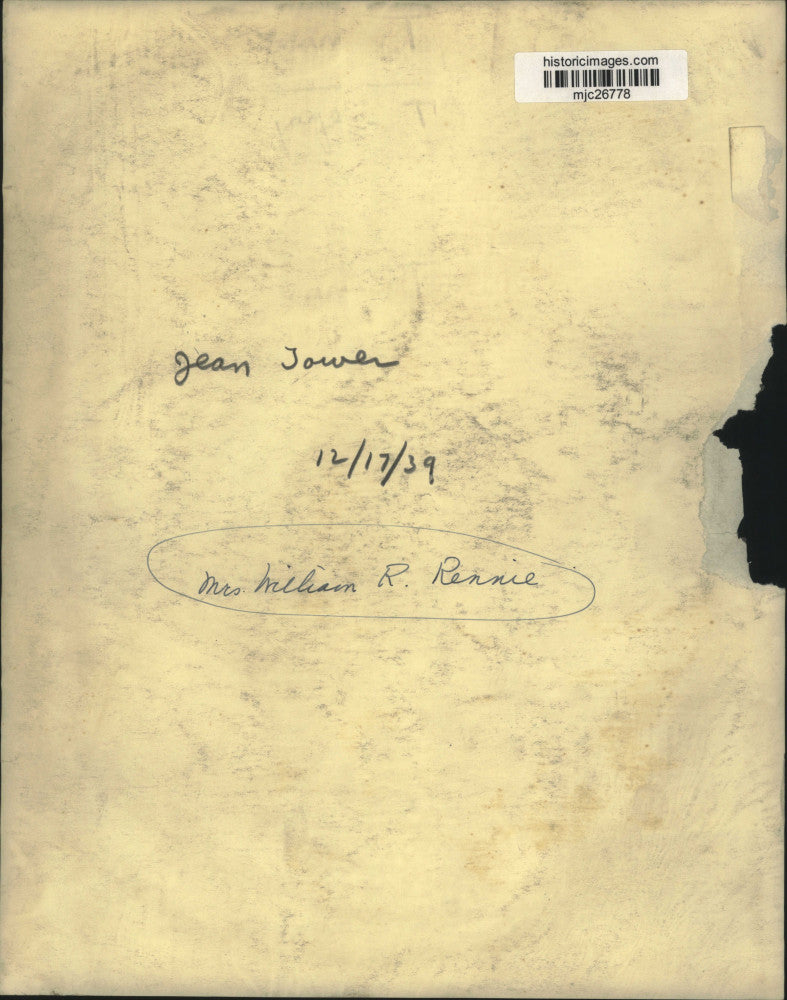 historicimages.com
mjc26778
Jean Tower
12/17/39
Mrs. William R. Rennie